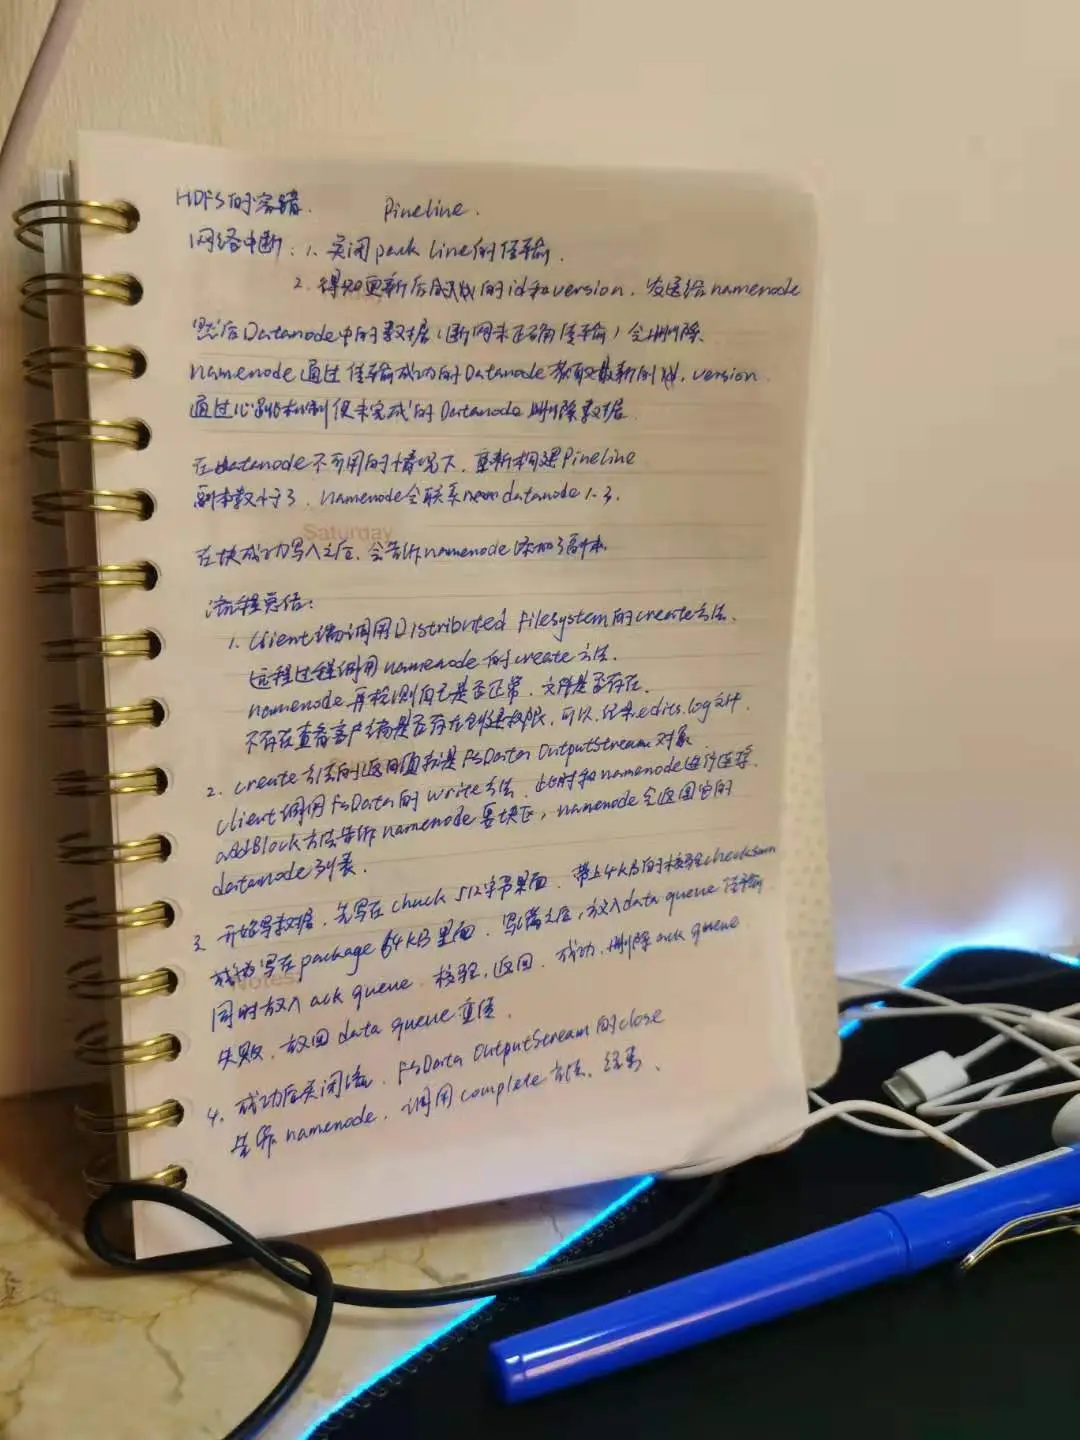 HDFS的容错. Pineline.
网络中断: 1. 关闭pack line的传输.
2. 得知更新后的时间戳的id和version, 发送给namenode
然后Datanode中的数据(断网未正确传输)会删除.
namenode通过传输成功的Datanode获取最新的id, version.
通过心跳机制使未完成的Datanode删除数据.
在datanode不可用的情况下, 重新构建Pineline
副本数小于3, namenode会联系 datanode 1.3.
Saturday
在块成功写入之后, 会告诉namenode添加了副本.
流程总结:
1. Client端调用Distributed Filesystem的create方法.
远程过程调用namenode的create方法.
namenode再检测自己是否正常, 文件是否存在.
不存在查看客户端是否存在创建权限, 可以, 记录edits.log文件.
2. create方法的返回值就是FsData OutputStream对象
client调用FsData的write方法, 此时和namenode进行连接.
addBlock方法告诉namenode要块了, namenode会返回它的
datanode列表.
3. 开始写数据, 先写在chuck 512字节里面, 带上4kB的校验checksum
成为写在package 64kB里面, 写满之后, 放入data queue传输
Notes
同时放入ack queue, 校验, 返回, 成功, 删除ack queue
失败, 放回data queue重传.
4. 成功后关闭流, FsData OutputStream的close
告诉namenode, 调用complete方法, 结束.